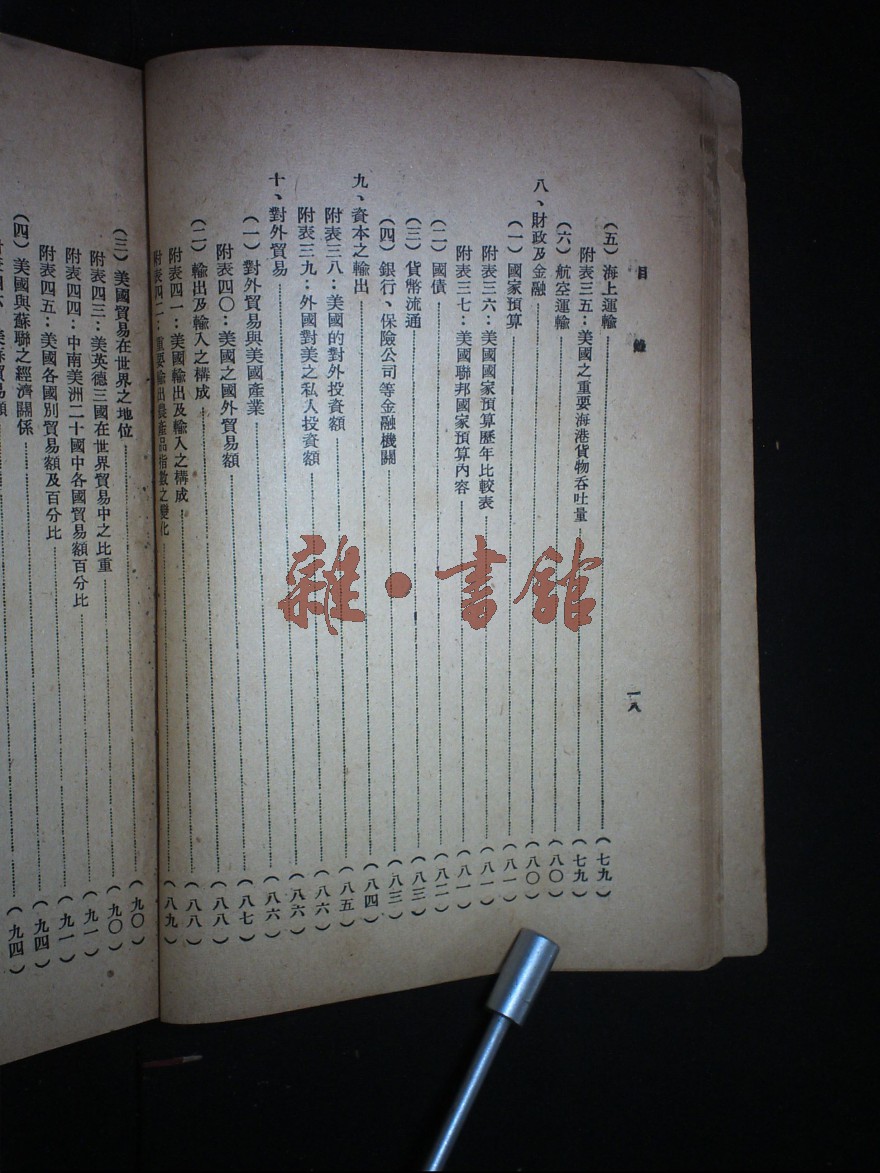 目錄
一八
（五）海上運輸（七九）
附表三五：美國之重要海港貨物吞吐量（七九）
（六）航空運輸（八〇）
八、財政及金融（八〇）
（一）國家預算（八一）
附表三六：美國國家預算歷年比較表（八一）
附表三七：美國聯邦國家預算內容（八一）
（二）國債（八二）
（三）貨幣流通（八三）
（四）銀行、保險公司等金融機關（八三）
九、資本之輸出（八四）
附表三八：美國的對外投資額（八五）
附表三九：外國對美之私人投資額（八六）
十、對外貿易（八六）
（一）對外貿易與美國產業（八六）
附表四〇：美國之國外貿易額（八七）
（二）輸出及輸入之構成（八八）
附表四一：美國輸出及輸入之構成（八八）
附表四二：重要輸出農產品指數之變化（八九）
（三）美國貿易在世界之地位（九〇）
附表四三：美英德三國在世界貿易中之比重（九〇）
附表四四：中南美洲二十國中各國貿易額百分比（九一）
附表四五：美國各國別貿易額及百分比（九一）
（四）美國與蘇聯之經濟關係（九四）
貿易額（九四）
雜·書館